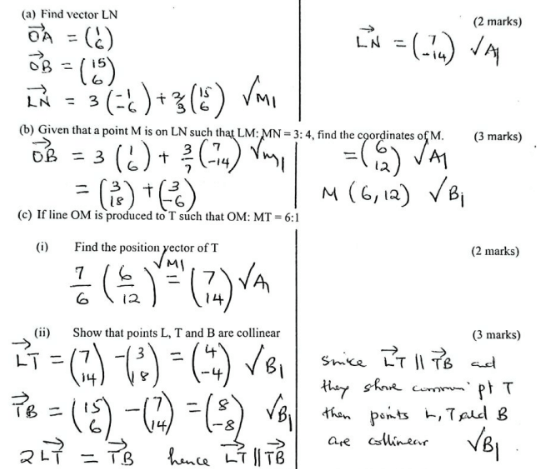 (a) Find vector LN (2 marks)
→OA = (1 6)
→LN = (7 -14) √A1
→OB = (15 6)
→LN = 3(-1 -6) + 2/3(15 6) √M1
(b) Given that a point M is on LN such that LM: MN = 3: 4, find the coordinates of M. (3 marks)
→OB = 3(1 6) + 3/7(7 -14) √M1
= (6 12) √A1
= (3 18) + (3 -6)
M (6, 12) √B1
(c) If line OM is produced to T such that OM: MT = 6:1
(i) Find the position vector of T (2 marks)
7/6 (6 12) √M1 = (7 14) √A1
(ii) Show that points L, T and B are collinear (3 marks)
→LT = (7 14) - (3 18) = (4 -4) √B1
→TB = (15 6) - (7 14) = (8 -8) √B1
2→LT = →TB hence →LT || →TB
since →LT || →TB and
they share common pt T
then points L, T and B
are collinear √B1